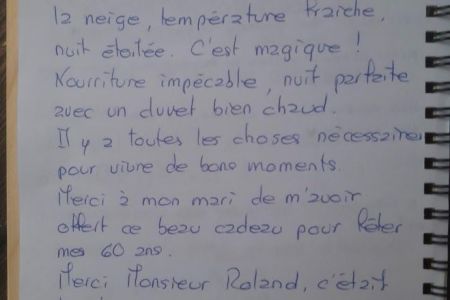 la neige, température fraiche,
nuit étoilée. C'est magique !
Nourriture impécable, nuit parfaite
avec un duvet bien chaud.
Il y a toutes les choses nécessaires
pour vivre de bons moments.
Merci à mon mari de m'avoir
offert ce beau cadeau pour fêter
mes 60 ans.
Merci Monsieur Roland, c'était